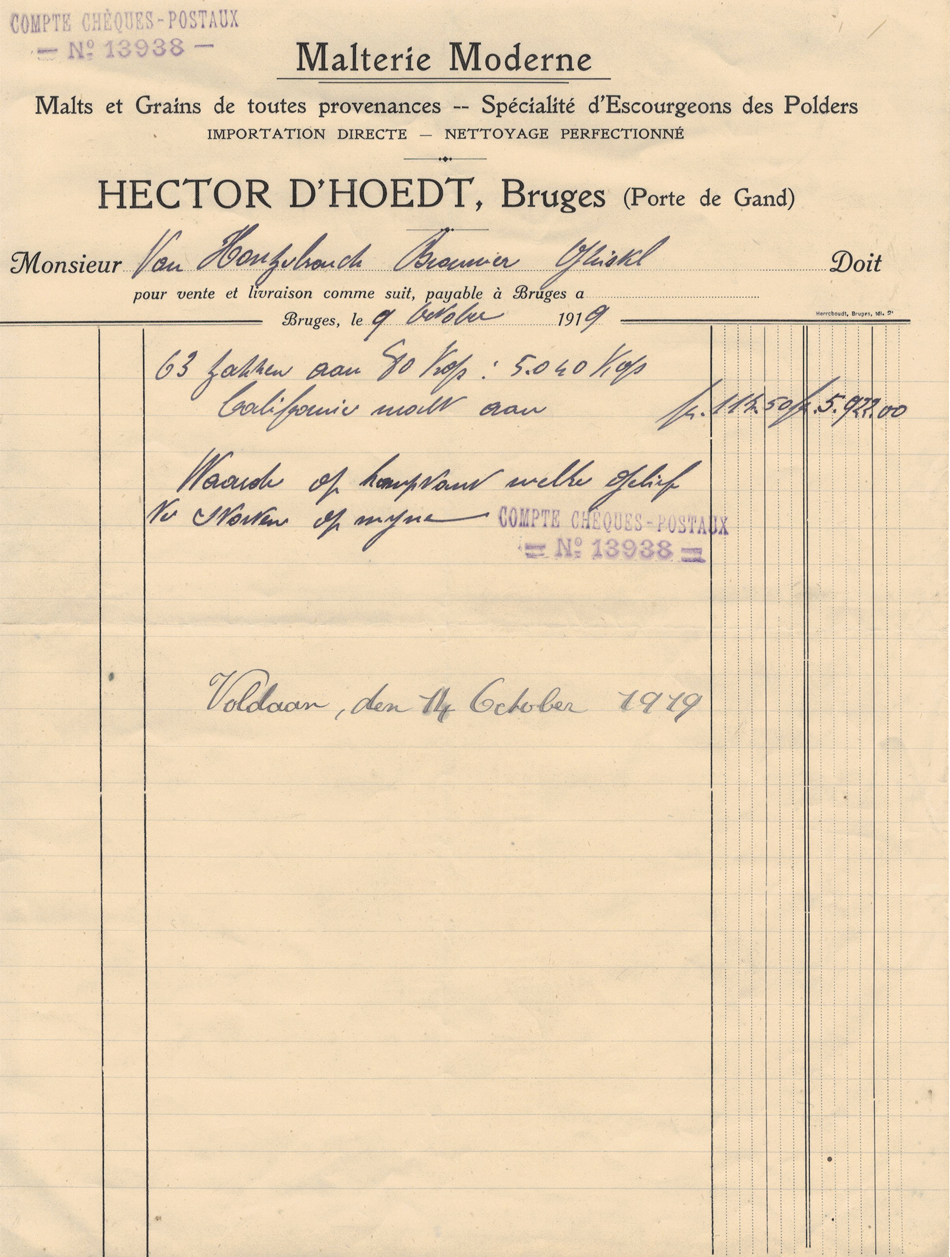 COMPTE CHÈQUES-POSTAUX
— Nº 13938 —
Malterie Moderne
Malts et Grains de toutes provenances -- Spécialité d'Escourgeons des Polders
IMPORTATION DIRECTE — NETTOYAGE PERFECTIONNÉ
HECTOR D'HOEDT, Bruges (Porte de Gand)
Monsieur Van Brouwer Doit
pour vente et livraison comme suit, payable à Bruges a
Bruges, le 9 October 1919
63 zakken aan 80 Kgs : 5.040 Kgs
Californie malt aan fr. 117.50 fr. 5.922.00
Waarde op komptant welke gelief
te storten op myne COMPTE CHÈQUES-POSTAUX
= Nº 13938 =
Voldaan, den 14 October 1919